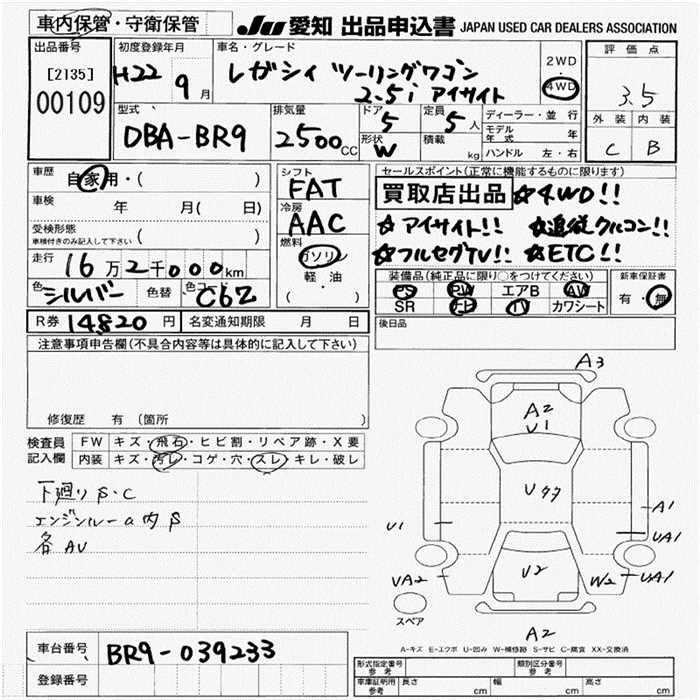 車内保管・守衛保管
JU 愛知 出品申込書 JAPAN USED CAR DEALERS ASSOCIATION
出品番号
[2135]
00109
初度登録年月
H22 9月
車名・グレード
レガシィ ツーリングワゴン
2.5i アイサイト
2WD
・
4WD
評価点
3.5
外装 内装
C B
型式
DBA-BR9
排気量
2500CC
ドア
5
形状
W
定員
5人
積載
kg
ディーラー・並行
モデル年式 年
ハンドル 左・右
車歴 自家用・( )
車検 年 月( 日)
受検形態
車検付きのみ記入して下さい ( )
走行 16万2千000km
色 シルバー 色替 色コード C6Z
シフト
FAT
冷房
AAC
燃料
ガソリン
軽・油
( ・ )
セールスポイント(正常に機能するものに限ります)
買取店出品 ☆4WD!!
☆アイサイト!! ☆追従クルコン!!
☆フルセグTV!! ☆ETC!!
装備品(純正品に限り○をつけてください)
PS PW エアB AW
SR ナビ TV カワシート
新車保証書
有・無
R券 14820円 名変通知期限 月 日
後日品
注意事項申告欄(不具合内容等は具体的に記入して下さい)
修復歴 有 (箇所 )
検査員記入欄
FW キズ・飛石・ヒビ割・リペア跡・X要
内装 キズ・汚レ・コゲ・穴・スレ・キレ・破レ
下廻りS・C
エンジンルーム内S
各AU
A3
A2
U1
Uククク
A1
U1
UA1
UA2
U2
W2
UA1
スペア
A2
A-キズ E-エクボ U-凹み W-補修跡 S-サビ C-腐食 XX-交換済
車台番号 BR9-039233
登録番号
型式指定番号 参考
類別区分番号 参考
車庫証明用 参考 長さ cm 幅 cm 高さ cm